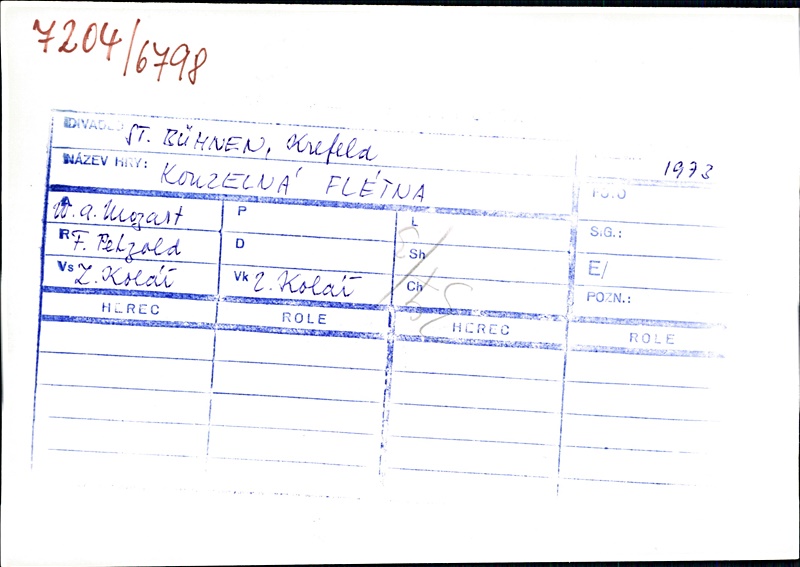 7204/6798
DIVADLO ST. BÜHNEN, Krefeld
NÁZEV HRY: KOUZELNÁ FLÉTNA
1973
W. A. Mozart P L
R F. Petzold D Sh S.G.:
Vs Z. Kolář Vk Z. Kolář Ch E/
POZN.:
HEREC ROLE HEREC ROLE